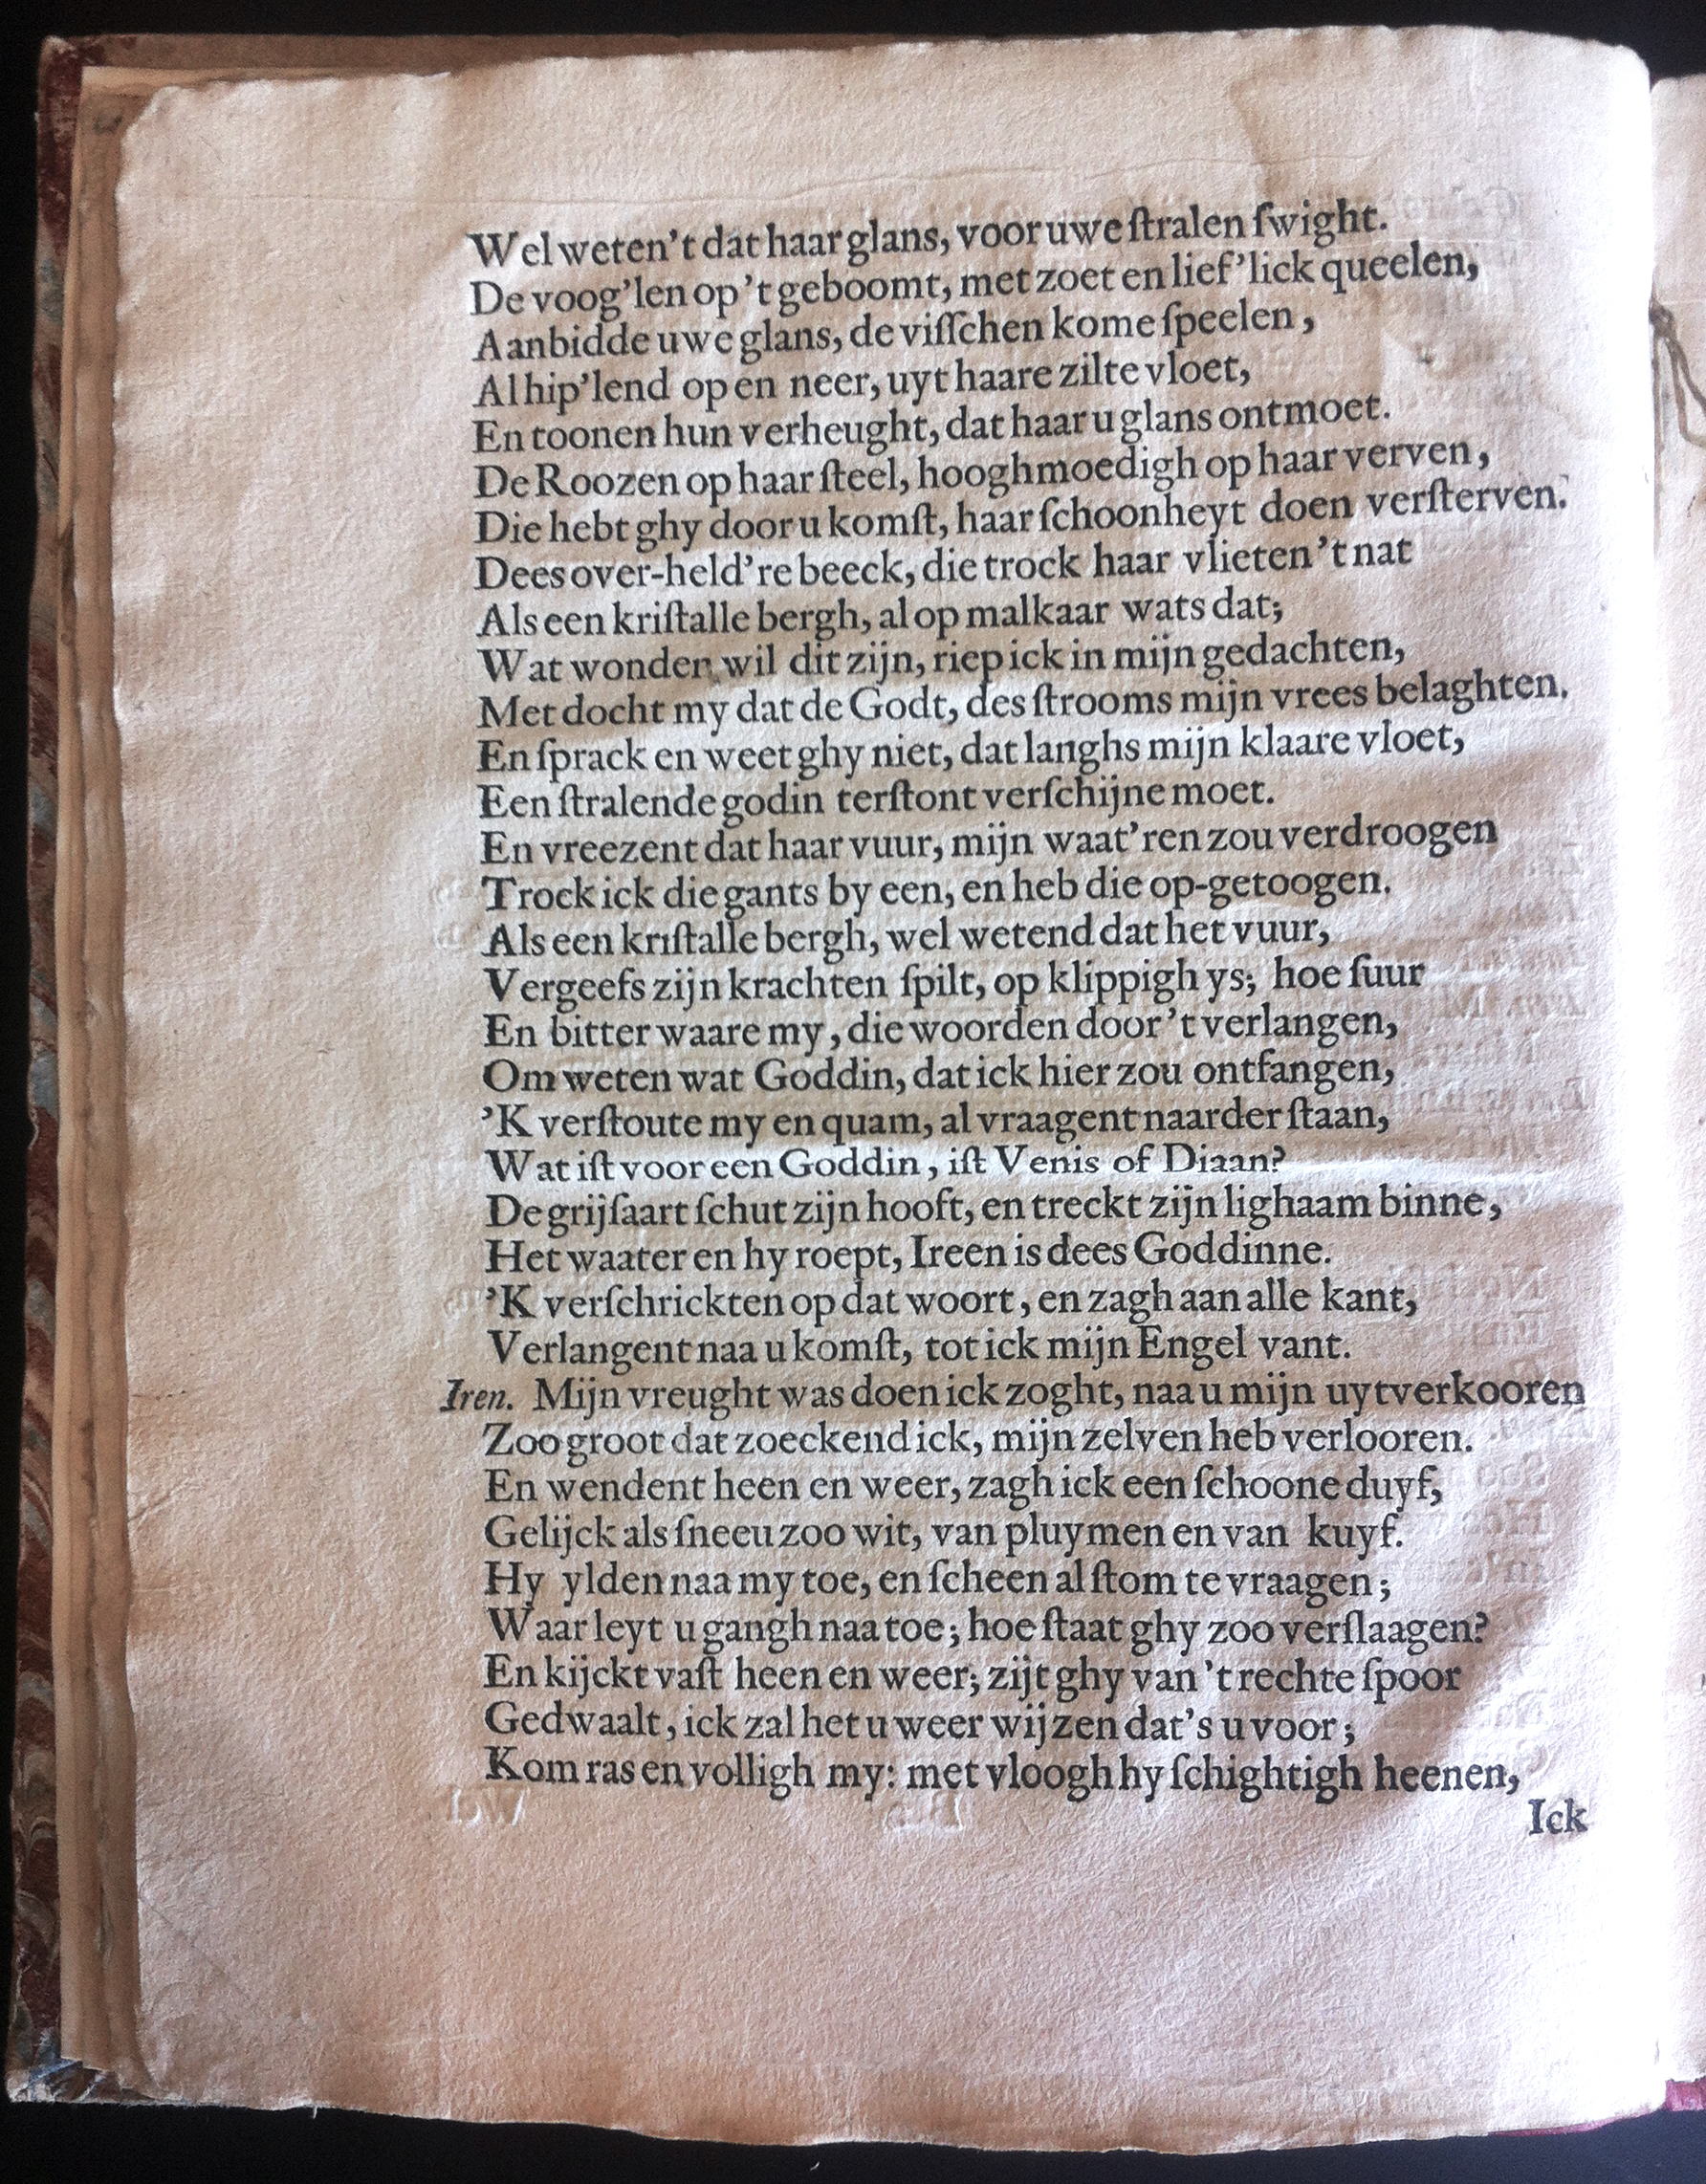 Wel weten’t dat haar glans, voor uwe ſtralen ſwight.
De voog’len op ’t geboomt, met zoet en lief’lick queelen,
Aanbidde uwe glans, de viſſchen kome ſpeelen,
Al hip’lend op en neer, uyt haare zilte vloet,
En toonen hun verheught, dat haar u glans ontmoet.
De Roozen op haar ſteel, hooghmoedigh op haar verven,
Die hebt ghy door u komſt, haar ſchoonheyt doen verſterven.
Dees over-held’re beeck, die trock haar vlieten ’t nat
Als een kriſtalle bergh, al op malkaar wats dat;
Wat wonder wil dit zijn, riep ick in mijn gedachten,
Met docht my dat de Godt, des ſtrooms mijn vrees belaghten.
En ſprack en weet ghy niet, dat langhs mijn klaare vloet,
Een ſtralende godin terſtont verſchijne moet.
En vreezent dat haar vuur, mijn waat’ren zou verdroogen
Trock ick die gants by een, en heb die op-getoogen.
Als een kriſtalle bergh, wel wetend dat het vuur,
Vergeefs zijn krachten ſpilt, op klippigh ys; hoe ſuur
En bitter waare my, die woorden door ’t verlangen,
Om weten wat Goddin, dat ick hier zou ontfangen,
’K verſtoute my en quam, al vraagent naarder ſtaan,
Wat iſt voor een Goddin, iſt Venis of Diaan?
De grijſaart ſchut zijn hooft, en treckt zijn lighaam binne,
Het waater en hy roept, Ireen is dees Goddinne.
’K verſchrickten op dat woort, en zagh aan alle kant,
Verlangent naa u komſt, tot ick mijn Engel vant.
Iren. Mijn vreught was doen ick zoght, naa u mijn uytverkooren
Zoo groot dat zoeckend ick, mijn zelven heb verlooren.
En wendent heen en weer, zagh ick een ſchoone duyf,
Gelijck als ſneeu zoo wit, van pluymen en van kuyf.
Hy ylden naa my toe, en ſcheen al ſtom te vraagen;
Waar leyt u gangh naa toe; hoe ſtaat ghy zoo verſlaagen?
En kijckt vaſt heen en weer; zijt ghy van ’t rechte ſpoor
Gedwaalt, ick zal het u weer wijzen dat’s u voor;
Kom ras en volligh my: met vloogh hy ſchightigh heenen,
Ick